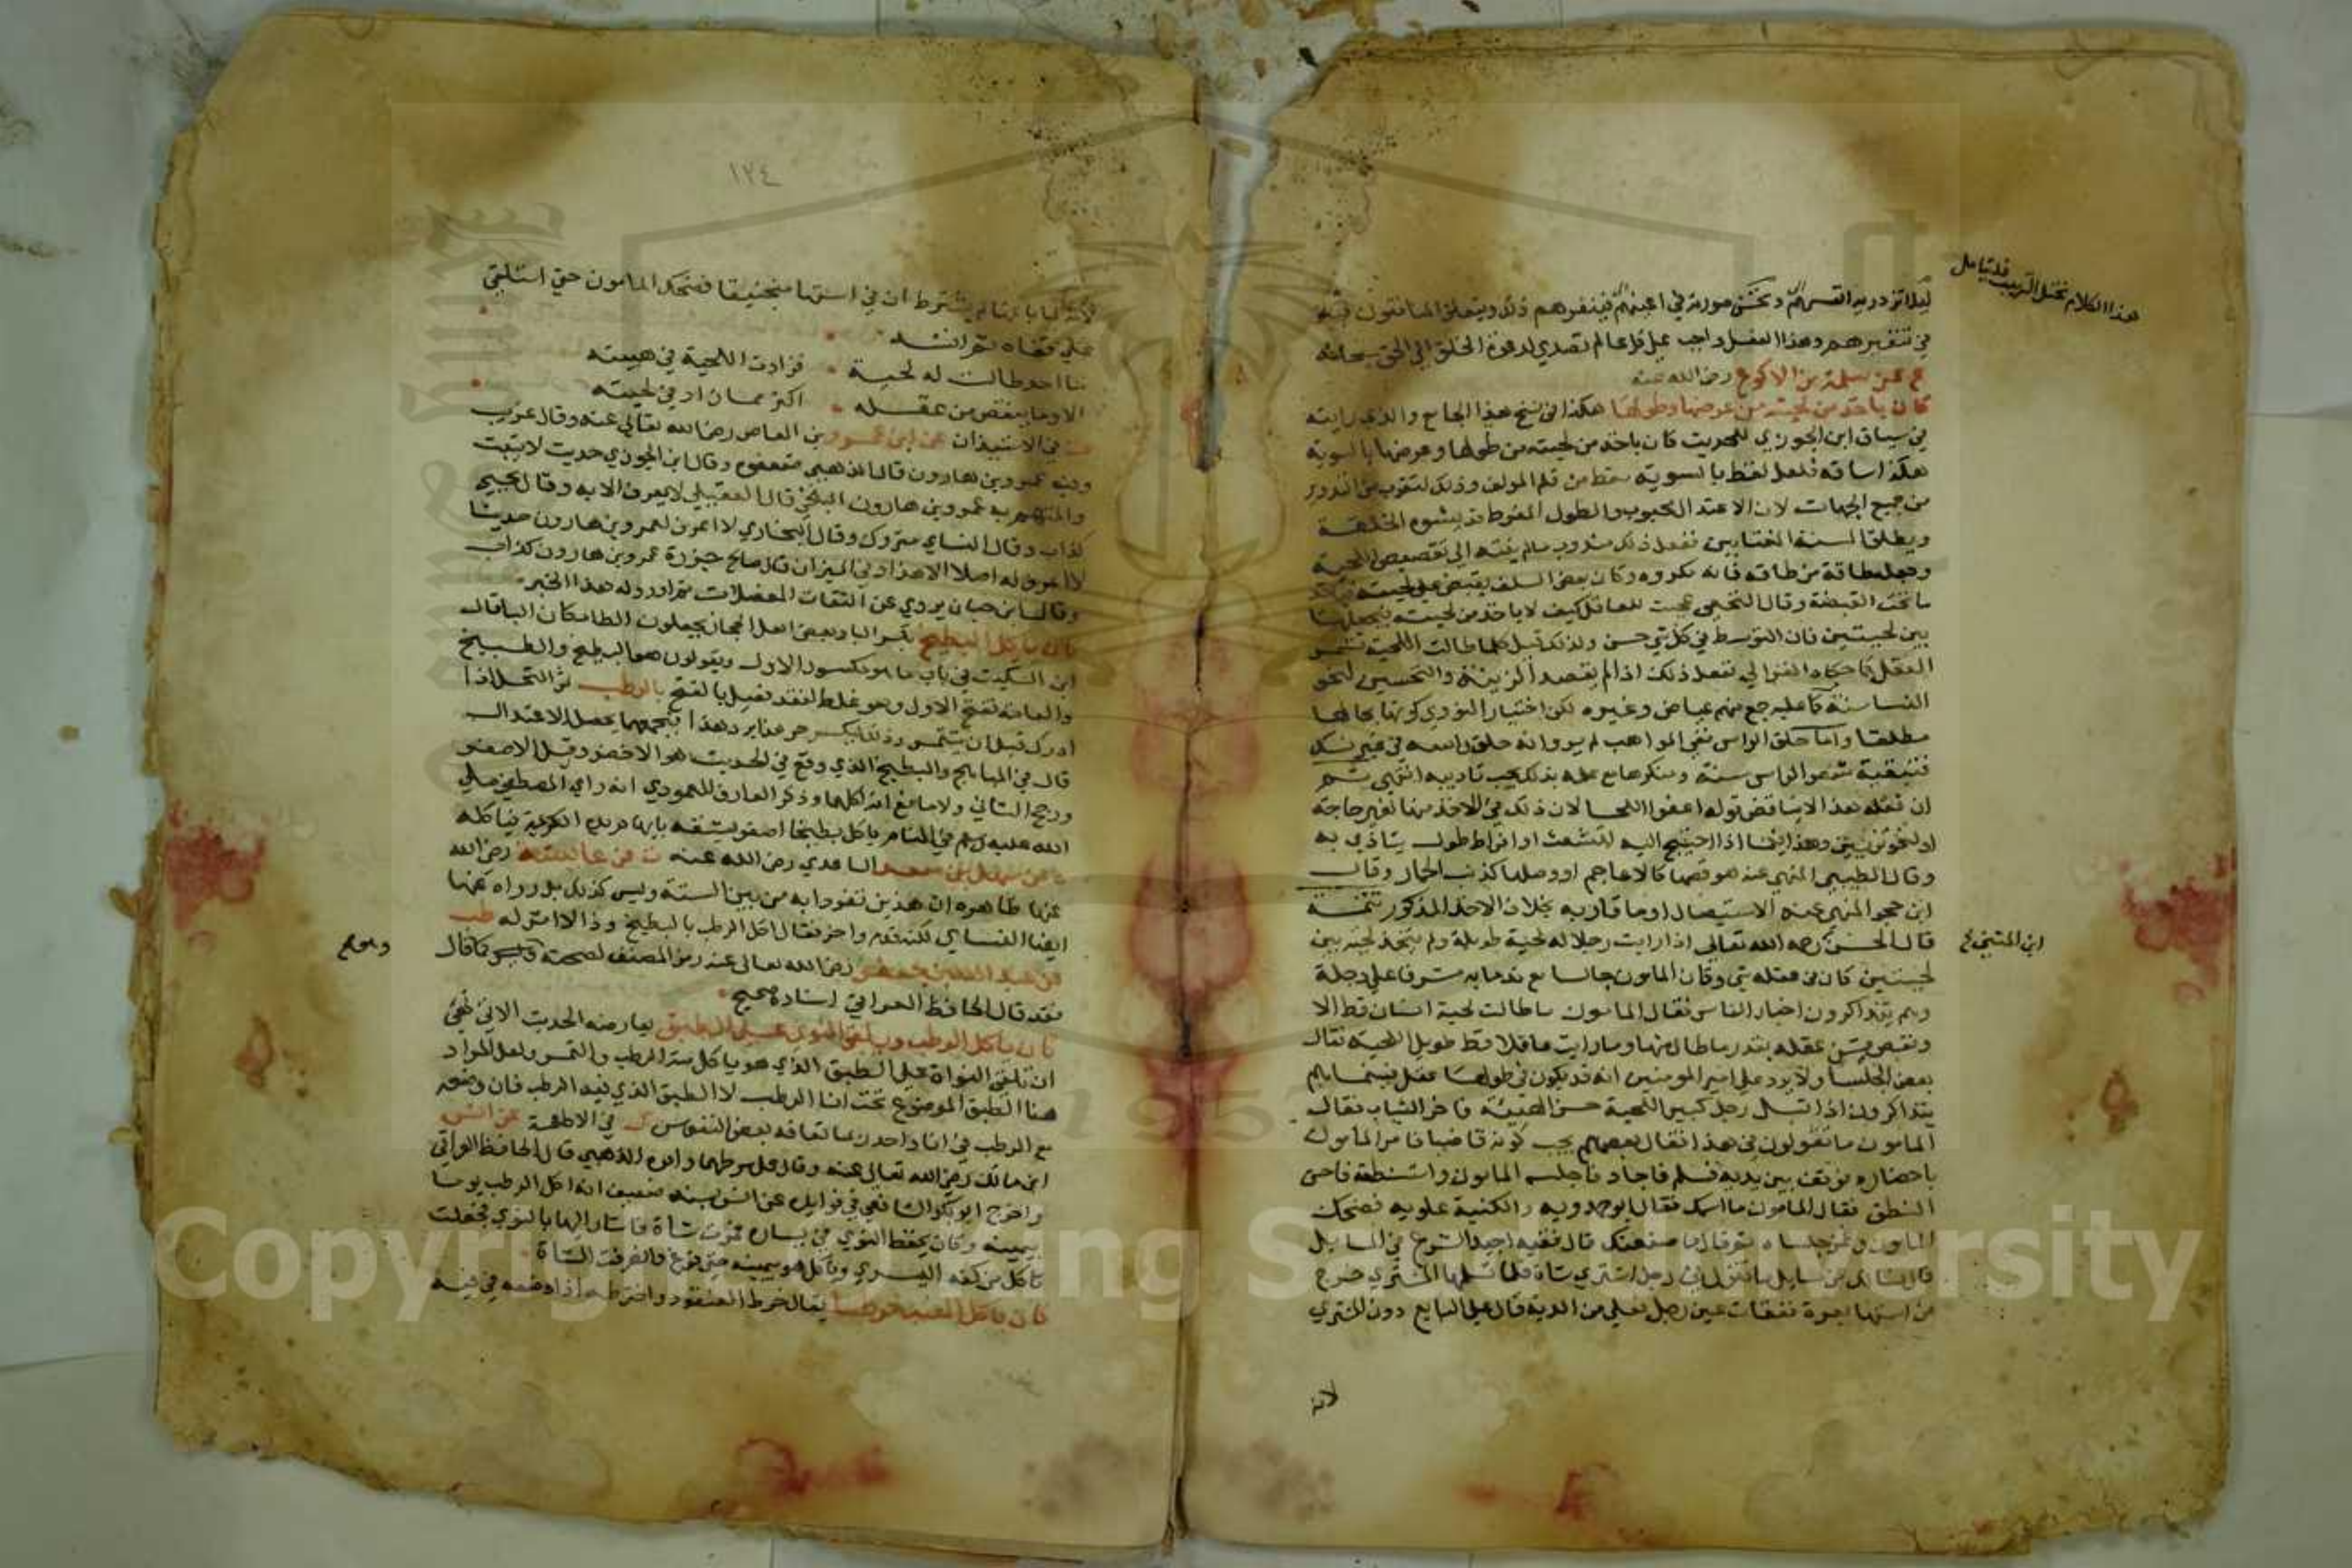 ليلا تزدريه انفسهم وتخشن صورته في اعينهم فينفرهم ذلك ويتعلق المنافقون بذلك
في تنفيرهم وهذا الفعل واجب على كل عالم تصدي لدعوة الخلق الى الحق سبحانه
عن سلمة بن الاكوع رضي الله عنه
كان ياخذ من لحيته من عرضها وطولها هكذا في نسخ هذا الجامع والذي رايته
في سياق ابن الجوزي للحديث كان ياخذ من لحيته من طولها وعرضها بالسوية
هكذا ساقه فلعل لفظ بالسوية سقط من قلم المولف وذلك لتقرب من التدوير
من جميع الجهات لان الاعتدال محبوب والطول المفرط قد يشوه الخلقة
ويطلق السنة المغتابين ففعل ذلك مندوب مالم ينته الى تقصيص اللحية
وجعلها طاقة من طاقه فانه مكروه وكان بعض السلف يقبض على لحيته فياخذ
ما تحت القبضة وقال النخعي عجبت للعاقل كيف لا ياخذ من لحيته فيجعلها
بين لحيتين فان التوسط في كل شي حسن ولذلك قيل كلما طالت اللحية تشمر
العقل كما حكاه الغزالي ففعل ذلك اذا لم يقصد الزينة والتحسين لنحو
النسا سنة كما عليه جمع منهم عياض وغيره لكن اختيار النووي تركها بحالها
مطلقا واما حلق الراس ففي المواهب لم يرو انه حلق راسه في غير نسك
فتبقية شعر الراس سنة ومنكرها مع علمه بذلك يجب تاديبه انتهى ثم
ان فعله هذا لا يناقض قوله اعفوا اللحا لان ذلك في الاخذ منها لغير حاجة
او لنحو تزيين وهذا فيما اذا احتيج اليه لتشعث او افراط طول يتاذى به
وقال الطيبي المنهي عنه هو قصها كالاعاجم او وصلها كذنب الحمار وقال
ابن حجر المنهي عنه الاستيصال او ما قاربه بخلاف الاخذ المذكور تتمة
قال الحسن رحمه الله تعالى اذا رايت رجلا له لحية طويلة ولم يتخذ لحية بين
لحيتين كان في عقله شي وكان المامون جالسا مع ندمايه مشرفا على دجلة
وهم يتذاكرون اخبار الناس فقال المامون ما طالت لحية انسان قط الا
ونقص من عقله بقدر ما طال منها وما رايت عاقلا قط طويل اللحية فقال
بعض الجلسا ولا يرد على امير المومنين انه قد يكون في طولها عقل فبينما هم
يتذاكرون اذ اقبل رجل كبير اللحية حسن الهيئة فاخر الثياب فقال
المامون ما تقولون في هذا فقال بعضهم يجب كونه قاضيا فامر المامون
باحضاره فوقف بين يديه فسلم فاجاد فاجلسه المامون واستنطقه فاحسن
النطق فقال المامون ما اسمك فقال ابو حمدويه والكنية علويه فضحك
المامون وغمز جلساه ثم قال ما صنعتك قال فقيه اجيد الشرع في المسايل
فقال نسالك عن مسايل ما تقول في رجل اشترى شاة فلما تسلمها المشتري خرج
من استها بعرة ففقات عين رجل فعلى من الدية قال على البايع دون المشتري
لانه
هذا الكلام مختل الترتيب فليتامل
ابن المثنى ع
١٢٤
لانه لما باعها لم يشترط ان في استها منجنيقا فضحك المامون حتى استلقى
على قفاه ثم انشد
ما احد طالت له لحية فزادت اللحية في هيبته
الا وما ينقص من عقله اكثر مما زاد في لحيته
ت في الاستيذان عن ابن عمرو بن العاص رضي الله تعالى عنه وقال غريب
وفيه عمرو بن هارون قال الذهبي ضعفوه وقال ابن الجوزي حديث لا يثبت
والمتهم به عمرو بن هارون البلخي قال العقيلي لا يعرف الا به وقال يحيى
كذاب وقال النساي متروك وقال البخاري لا اعرف لعمرو بن هارون حديثا
لا اعرف له اصلا الا هذا وفي الميزان قال صالح جزرة عمرو بن هارون كذاب
وقال ابن حبان يروي عن الثقات المعضلات ثم اورد له هذا الخبر
كان ياكل البطيخ بكسر البا وبعض اهل الحجاز يجعلون الطا مكان البا قال
ابن السكيت في باب ما هو مكسور الاول ويقولون هو البطيخ والطبيخ
والعامة تفتح الاول وهو غلط لفقد فعيل بالفتح بالرطب ثمر النخل اذا
ادرك قبل ان يتتمر وذلك ليكسر حر هذا برد هذا فبجمعهما يحصل الاعتدال
قال في المناهج والبطيخ الذي وقع في الحديث هو الاخضر وقيل الاصفر
ورجح الثاني ولا مانع انه اكلهما وذكر العارف العمودي انه راى المصطفى صلى
الله عليه وسلم في المنام ياكل بطيخا اصفر يشقه بابهام يده الكريمة فياكله
ه عن سهل بن سعد الساعدي رضي الله عنه ت عن عايشة رضي الله
عنها ظاهره ان هذين تفردا به من بين الستة وليس كذلك بل رواه عنها
ايضا النساي لكنه قدم واخر فقال اكل الرطب بالبطيخ وذا لا اثر له طب
عن عبد الله بن جعفر رضي الله تعالى عنه رمز المصنف لصحته وهو كما قال
فقد قال الحافظ العراقي اسناده صحيح
كان ياكل الرطب ويلقي النوى على الطبق يعارضه الحديث الاتي نهي
ان تلقى النواة على الطبق الذي هو ياكل منه الرطب والتمر ولعل المراد
هنا الطبق الموضوع تحت انا الرطب لا الطبق الذي فيه الرطب فان وضعه
مع الرطب في انا واحد ربما تعافه بعض النفوس ك في الاطعمة عن انس
ابن مالك رضي الله تعالى عنه وقال على شرطهما واقره الذهبي قال الحافظ العراقي
واخرج ابو بكر الشافعي في فوايده عن انس بسند ضعيف انه اكل الرطب يوما
بيمينه وكان يحفظ النوى في يساره فمرت شاة فاشار اليها بالنوى فجعلت
تاكل من كفه اليسرى وياكل هو بيمينه حتى فرغ وانصرفت الشاة
كان ياكل العنب خرطا يقال خرط العنقود واخترطه اذا وضعه في فيه
وهو كم
Copyright © King Saud University
1957